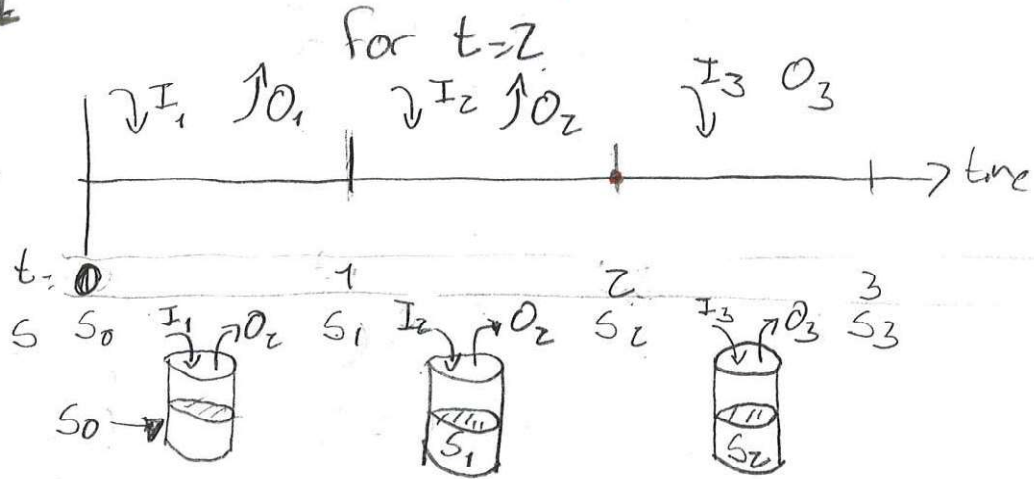 for t=2
I1 O1 I2 O2 I3 O3
time
t= 0 1 2 3
S S0 I1 O2 S1 I2 O2 S2 I3 O3 S3
S0 S1 S2